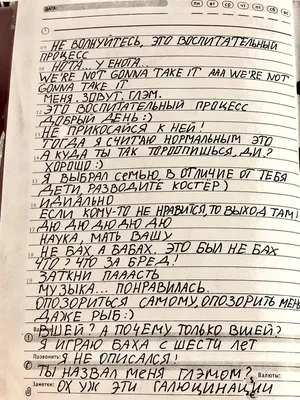 ДАТА:
пн вт ср чт пт сб вс
НЕ ВОЛНУЙТЕСЬ, ЭТО ВОСПИТАТЕЛЬНЫЙ
ПРОЦЕСС
НОТА... У ЕНОТА...
WE'RE NOT GONNA TAKE IT ААА WE'RE NOT
GONNA TAKE IT
МЕНЯ ЗОВУТ ГЛЭМ.
ЭТО ВОСПИТАТЕЛЬНЫЙ ПРОЦЕСС
ДОБРЫЙ ДЕНЬ :)
НЕ ПРИКОСАЙСЯ К НЕЙ!
ТОГДА Я СЧИТАЮ НОРМАЛЬНЫМ ЭТО
А КУДА ТЫ ТАК ТОРОПИШЬСЯ, ДИ?
ХОРОШО :)
Я ВЫБРАЛ СЕМЬЮ, В ОТЛИЧИЕ ОТ ТЕБЯ
ДЕТИ, РАЗВОДИТЕ КОСТЕР)
ИДИАЛЬНО
ЕСЛИ КОМУ-ТО НЕ НРАВИТСЯ, ТО ВЫХОД ТАМ!
ДЮ ДЮ ДЮ ДЮ ДЮ
НАУКА, МАТЬ ВАШУ
НЕ БАХ, А БАБАХ. ЭТО БЫЛ НЕ БАХ
ЧТО? ЧТО ЗА БРЕД!
ЗАТКНИ ПАААСТЬ
МУЗЫКА... ПОНРАВИЛАСЬ.
ОПОЗОРИТЬСЯ САМОМУ, ОПОЗОРИТЬ МЕНЯ
ДАЖЕ РЫБ :)
ВШЕЙ? А ПОЧЕМУ ТОЛЬКО ВШЕЙ?
Я ИГРАЮ БАХА С ШЕСТИ ЛЕТ
Позвонить: Я НЕ ОПИСАЛСЯ!
ТЫ НАЗВАЛ МЕНЯ ГЛЭМОМ? Валюты:
Заметки: ОХ УЖ ЭТИ ГАЛЮЦИНАЦИИ